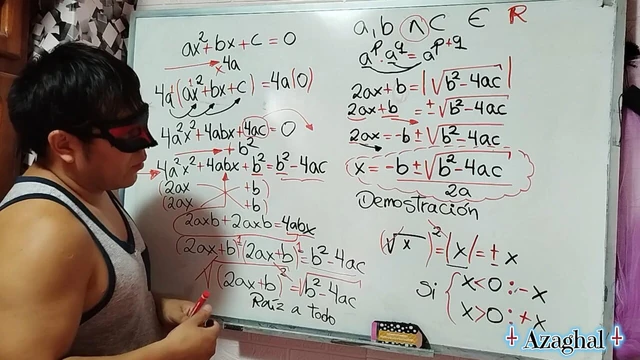 ax² + bx + c = 0
x 4a
4a¹(ax² + bx + c) = 4a(0)
4a²x² + 4abx + 4ac = 0
+ b²
4a²x² + 4abx + b² = b² - 4ac
(2ax +b)
(2ax +b)
2axb + 2axb = 4abx
(2ax+b)¹(2ax+b)¹ = b² - 4ac
√(2ax+b)² = √b² - 4ac
Raíz a todo
a,b ∧ c ∈ R
aᵖ · a^q = a^p+q
2ax + b = |√b² - 4ac|
2ax + b = ± √b² - 4ac
2ax = -b ± √b² - 4ac
x = -b ± √b² - 4ac
2a
Demostración
(√x)² = |x| = ± x
Si { x<0 : - x
x>0 : + x
Azaghal